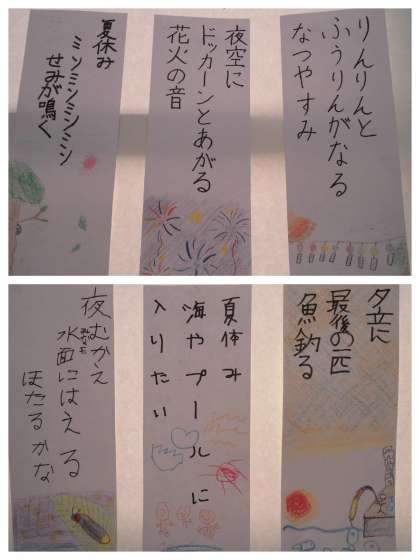 りんりんと
ふうりんがなる
なつやすみ
夜空に
ドッカーンとあがる
花火の音
夏休み
ミンミンミンミン
せみが鳴く
夕立に
最後の一匹
魚釣る
夏休み
海やプールに
入りたい
夜むかえ
水面にはえる
ほたるかな